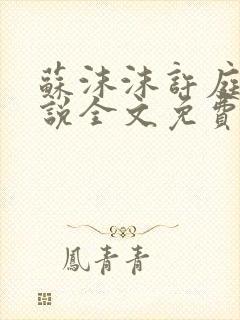 蘇沫沫許庭
說全文免費
鳳青青